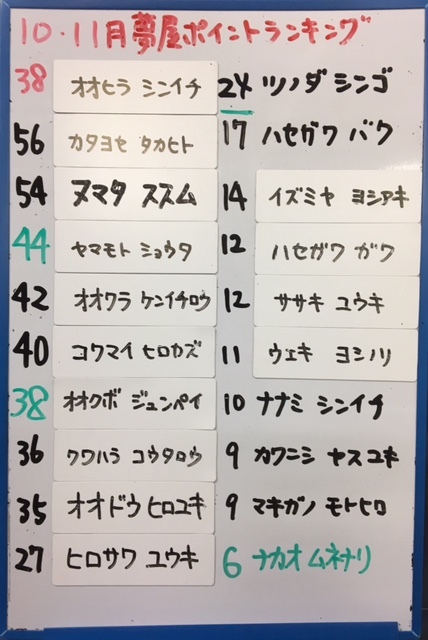 10・11月夢屋ポイントランキング
38 オオヒラ シンイチ
56 カタヨセ タカヒト
54 ヌマタ ススム
44 ヤマモト ショウタ
42 オオワラ ケンイチロウ
40 コワマイ ヒロカズ
38 オオクボ ジュンペイ
36 クワハラ コウタロウ
35 オオドウ ヒロユキ
27 ヒロサワ ユウキ
24 ツノダ シンゴ
17 ハセガワ バク
14 イズミヤ ヨシアキ
12 ハセガワ ガク
12 ササキ ユウキ
11 ウエキ ヨシノリ
10 ナナミ シンイチ
9 カワニシ ヤスユキ
9 マキガノ モトヒロ
6 ナカオ ムネナリ